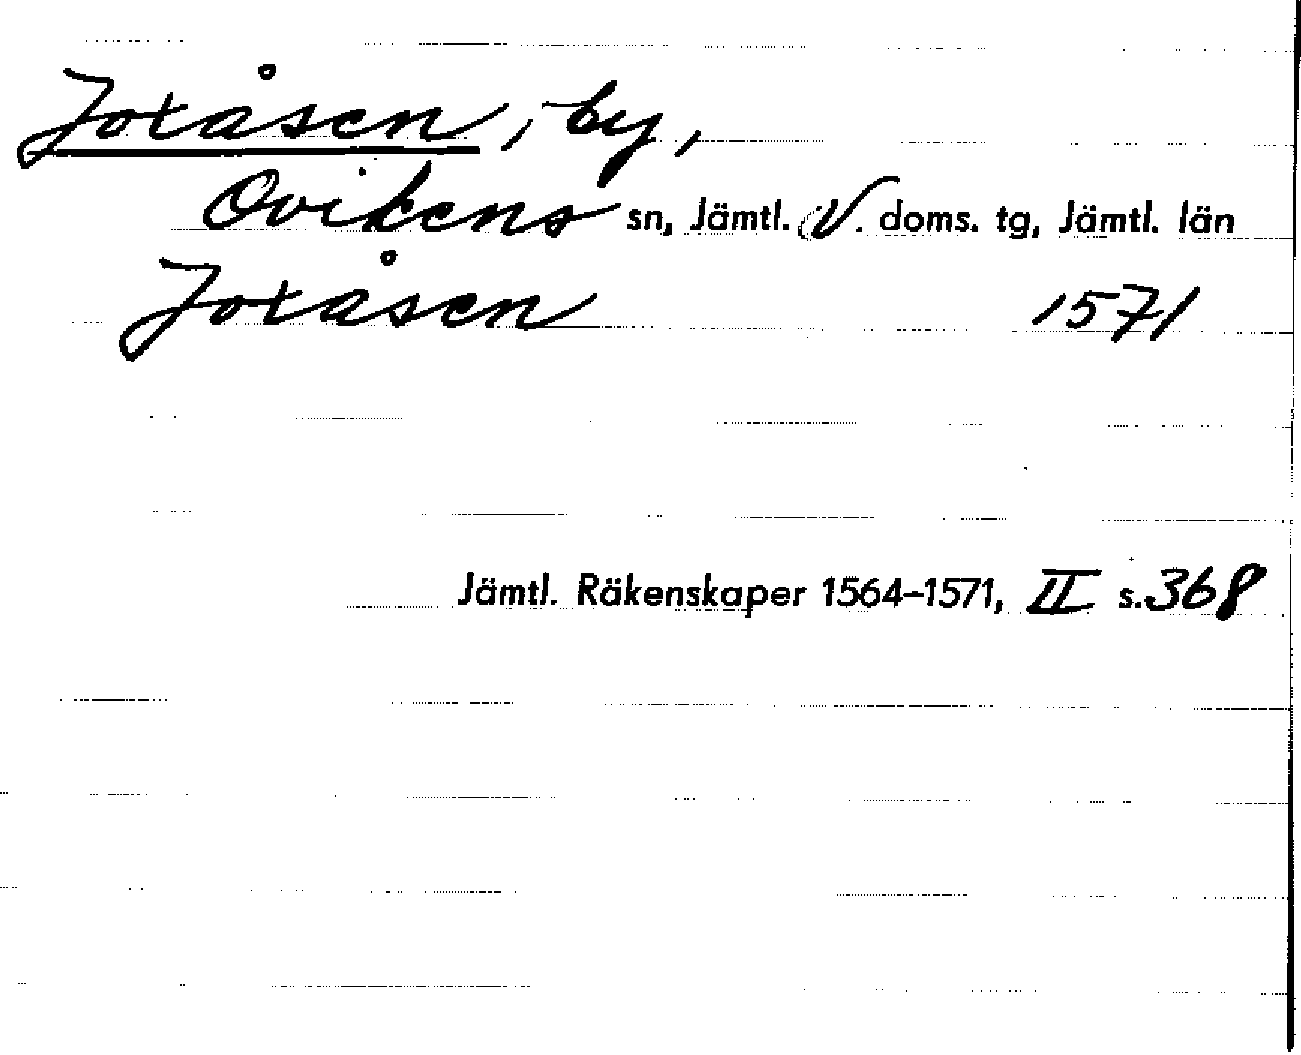 Joxåsen, by,
Ovikens sn, Jämtl. V. doms. tg, Jämtl. län
Joxåsen 1571
Jämtl. Räkenskaper 1564-1571, II s. 368